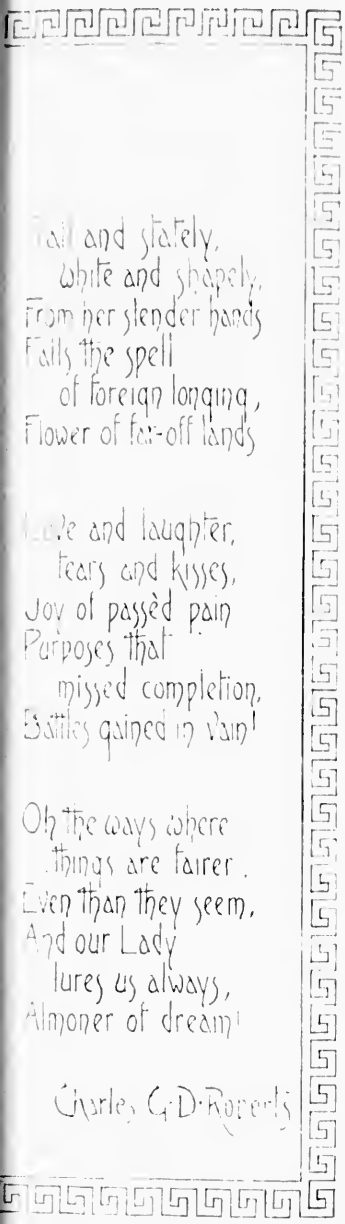 Tall and stately,
White and shapely,
From her slender hands
Falls the spell
of foreign longing,
Flower of far-off lands
Love and laughter,
tears and kisses,
Joy of passèd pain
Purposes that
missed completion,
Battles gained in vain!
Oh the ways where
things are fairer
Even than they seem,
And our Lady
lures us always,
Almoner of dream!
Charles G·D·Roberts